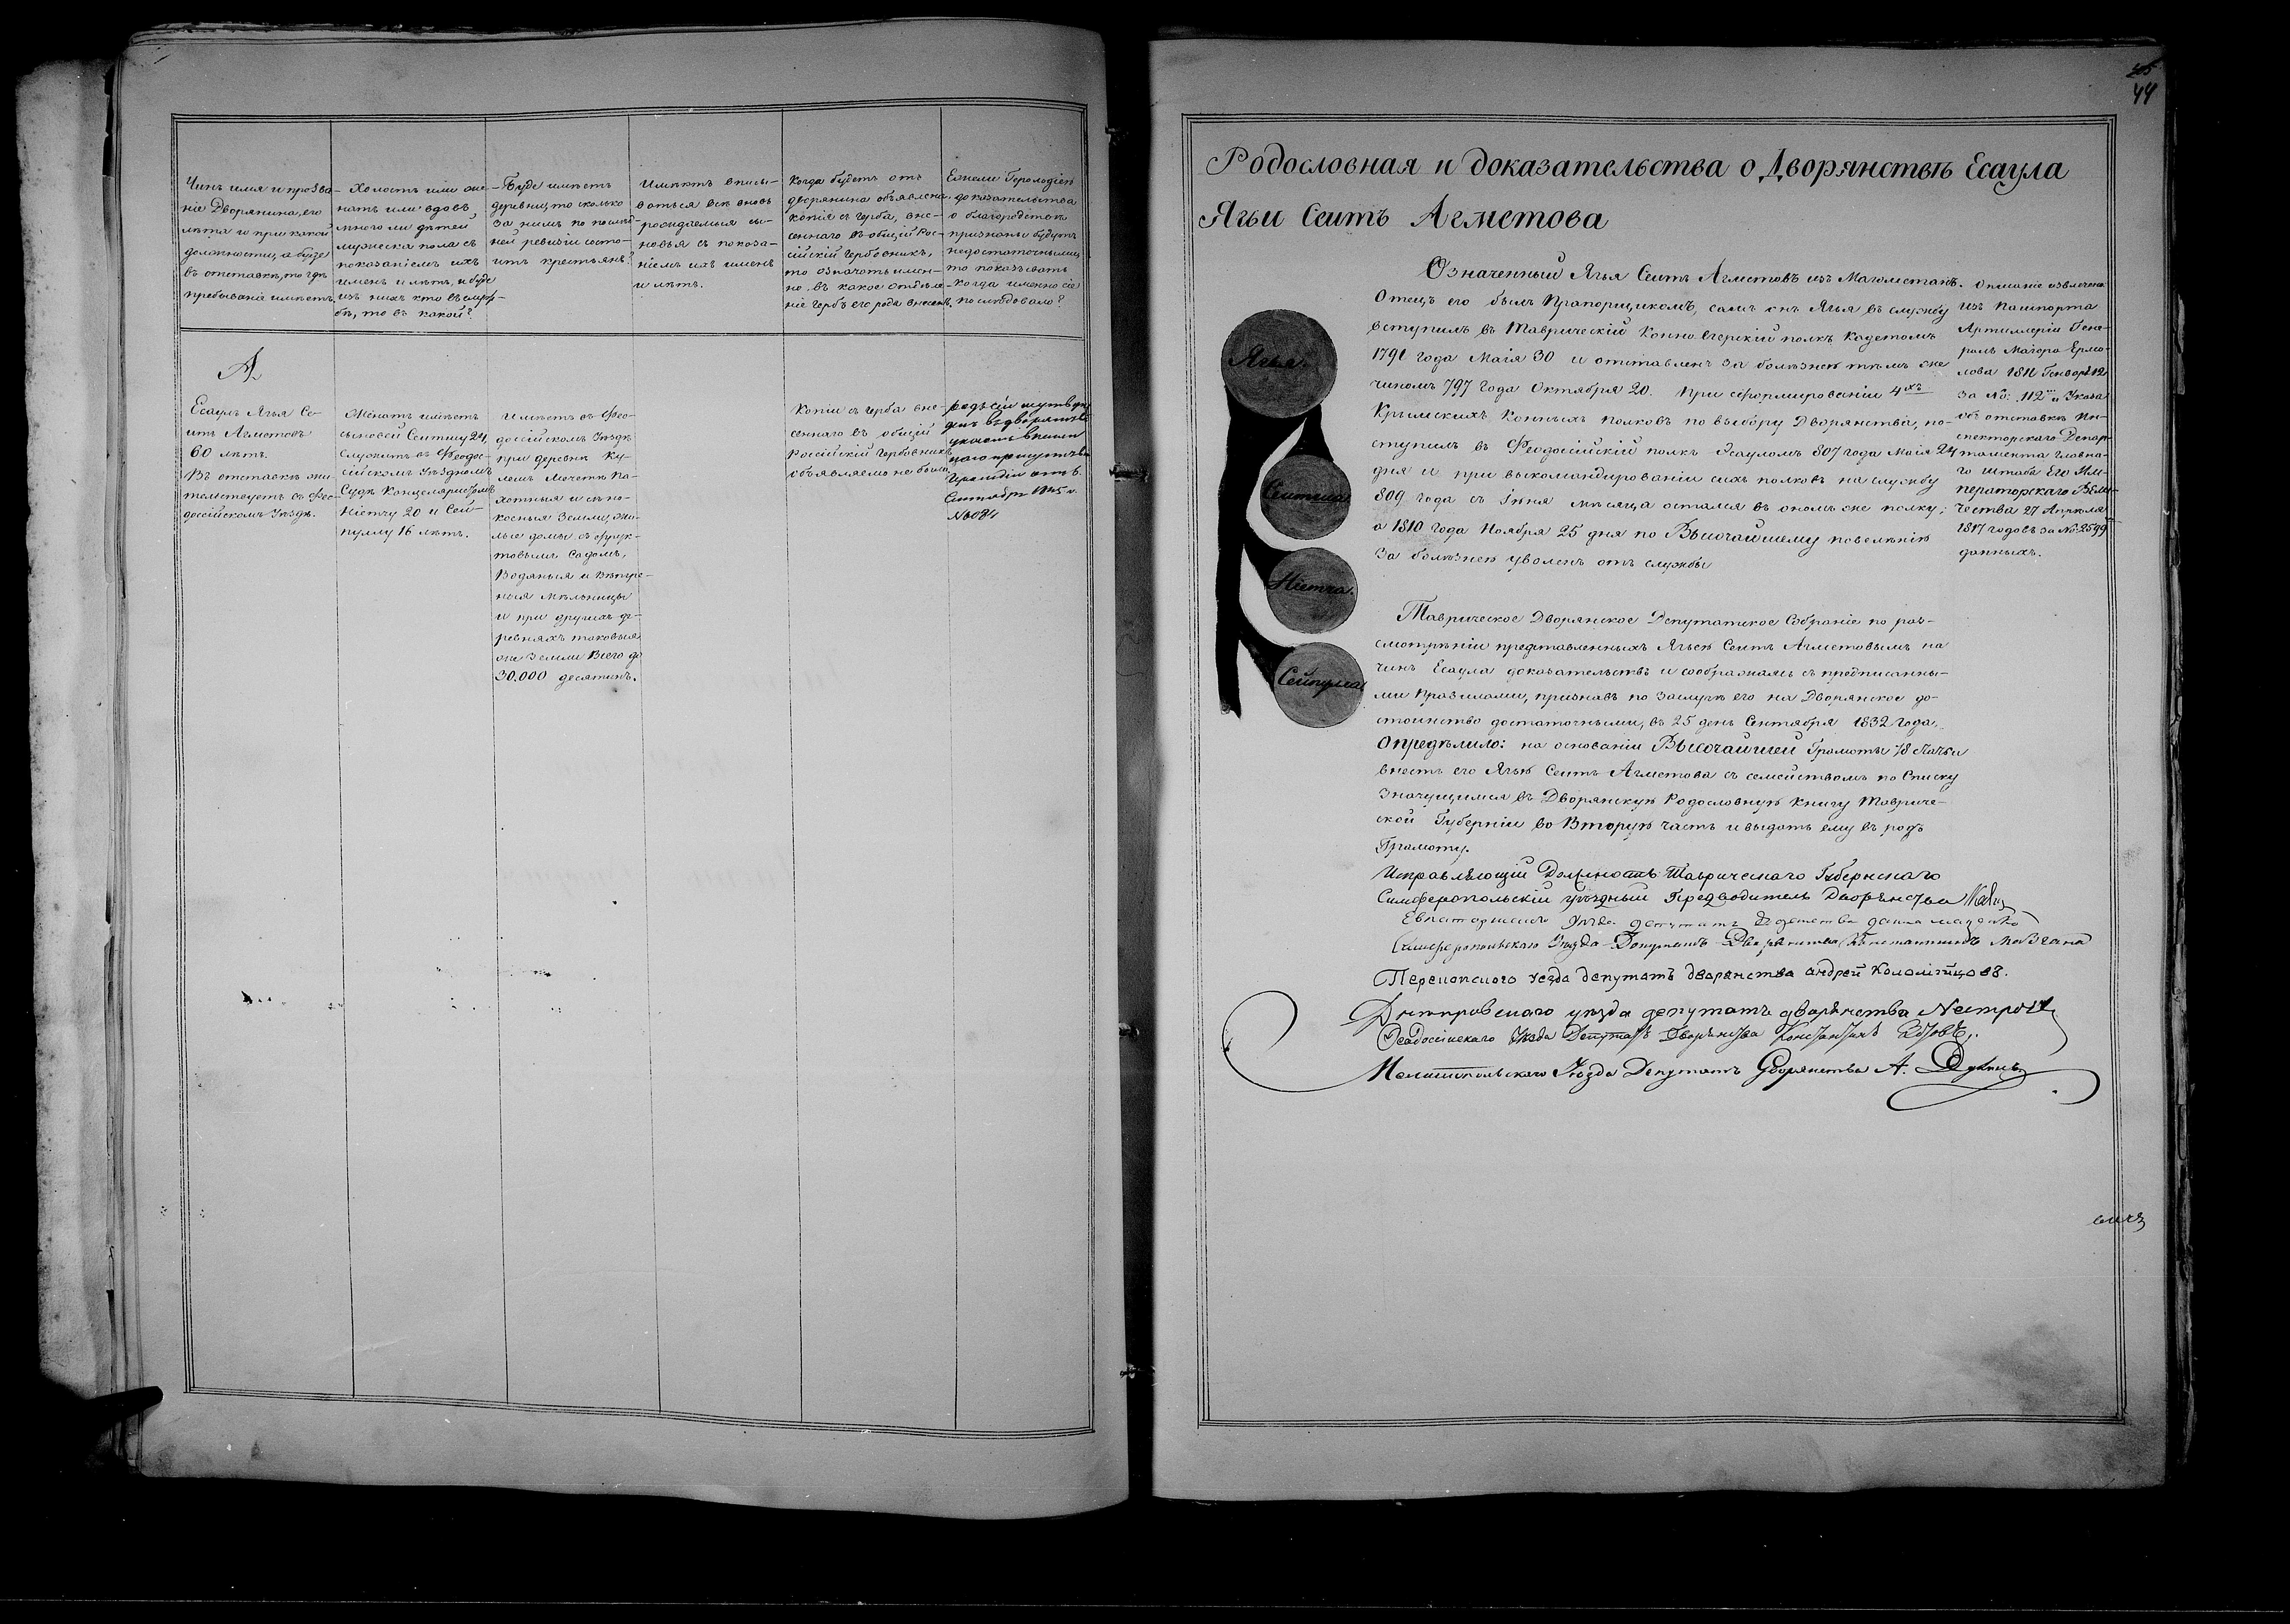 Чинъ имя и прозва-
ніе Дворянина, его
лѣта и при какой
должности, а буде
въ отставкѣ, то гдѣ
пребываніе имѣетъ
Холостъ или же-
натъ или вдовъ,
много ли дѣтей
мужеска пола съ
показаніемъ ихъ
именъ и лѣтъ, и буде
изъ нихъ кто въ служ-
бѣ, то въ какой?
Буде имѣетъ
деревни, то сколько
за нимъ по послѣд-
ней ревизіи состо-
итъ крестьянъ?
Имѣютъ вписы-
ваться всѣ вновь
рождаемыя сы-
новья съ показа-
ніемъ ихъ именъ
и лѣтъ.
Когда будетъ отъ
дворянина объявлена
копія съ герба, вне-
сеннаго въ общій Рос-
сійскій Гербовникъ,
то означать имен-
но, въ какое отдѣле-
ніе гербъ его рода внесенъ.
Ежели Герольдіею
доказательства
о благородствѣ
признаны будутъ
недостаточными,
то показывать
когда именно сіе
послѣдовало?
А
Есаулъ Ягья Се-
итъ Агметовъ
60 лѣтъ.
Въ отставкѣ жи-
тельствуетъ въ Фео-
досійскомъ Уѣздѣ.
Женатъ имѣетъ
сыновей Сеитшу 24,
служитъ въ Феодо-
сійскомъ Уѣздномъ
Судѣ Канцеляристомъ
Ніетчу 20 и Сей-
пуллу 16 лѣтъ.
Имѣетъ въ Фео-
досійскомъ Уѣздѣ
при деревнѣ Ку-
лешъ Мечеть Па-
хотныя и сѣно-
косныя Земли, жи-
лые домы, съ фрук-
товымъ Садомъ,
Водяныя и вѣтре-
ныя мѣльницы
и при другихъ де-
ревняхъ таковыя
же Земли Всего до
30.000 десятинъ.
Копіи съ герба вне-
сеннаго въ общій
Россійскій Гербовникъ
объявляемо не было.
родъ сей утверж-
денъ въ дворянствѣ
указомъ
Герольдіи отъ 6.
Сентября 1845 г.
№ 6084
44
Родословная и доказательства о Дворянствѣ Есаула
Ягьи Сеитъ Агметова
Означенный Ягья Сеитъ Агметовъ изъ Магометанъ.
Отецъ его былъ Прапорщикомъ, самъ онъ Ягья въ службу
вступилъ въ Таврическій Конно Егерскій полкъ Кадетомъ
1791 года Маія 30 и отставленъ за болѣзнею тѣмъ же
чиномъ 797 года Октября 20. При сформированіи 4хъ
Крымскихъ Конныхъ полковъ по выбору Дворянства, по-
ступилъ въ Феодосійскій полкъ Эсауломъ 807 года Маія 24
дня и при выкомандированіи сихъ полковъ на службу
809 года съ Іюня мѣсяца остался въ ономъ же полку;
а 1810 года Ноября 25 дня по Высочайшему повелѣнію
за болѣзнею уволенъ отъ службы
Описаніе извлечено
изъ Пашпорта
Артиллеріи Гене-
ралъ Маіора Ермо-
лова 1811 Генваря 12
за №: 112мъ и Указа
объ отставкѣ Ин-
спекторскаго Депар-
тамента Главна-
го Штаба Его Им-
ператорскаго Вели-
чества 27 Апрѣля
1817 годовъ за № 2599
данныхъ.
Ягья.
Сеитша
Ніетча.
Сейпулла
Таврическое Дворянское Депутатское Собраніе по раз-
смотрѣніи представленныхъ Ягьею Сеитъ Агметовымъ на
чинъ Есаула доказательствъ и сообразжаясь съ предписанны-
ми правилами, признавъ по заслугѣ его на Дворянское до-
стоинство достаточными, въ 25 день Сентября 1832 года,
Опредѣлило: на основаніи Высочайшей Грамоты 78 статьи
внесть его Ягью Сеитъ Агметова съ семействомъ по Списку
значущимся въ Дворянскую Родословную книгу Тавриче-
ской Губерніи во Вторую часть и выдать ему въ родъ
Грамоту.
Исправляющій Должность Таврическаго Губернскаго
Симферопольскій уѣздный Предводитель Дворянства
Симферопольскаго Уѣзда Депутатъ Дворянства Константинъ Мавгана
Перекопскаго уезда депутатъ дворянства андрей Коломійцовъ.
Днепровскаго уѣзда депутатъ дворянства
Феодосійскаго Уѣзда Депутатъ Дворянства Константинъ
Мелитопольскаго Уѣзда Депутатъ Дворянства А.